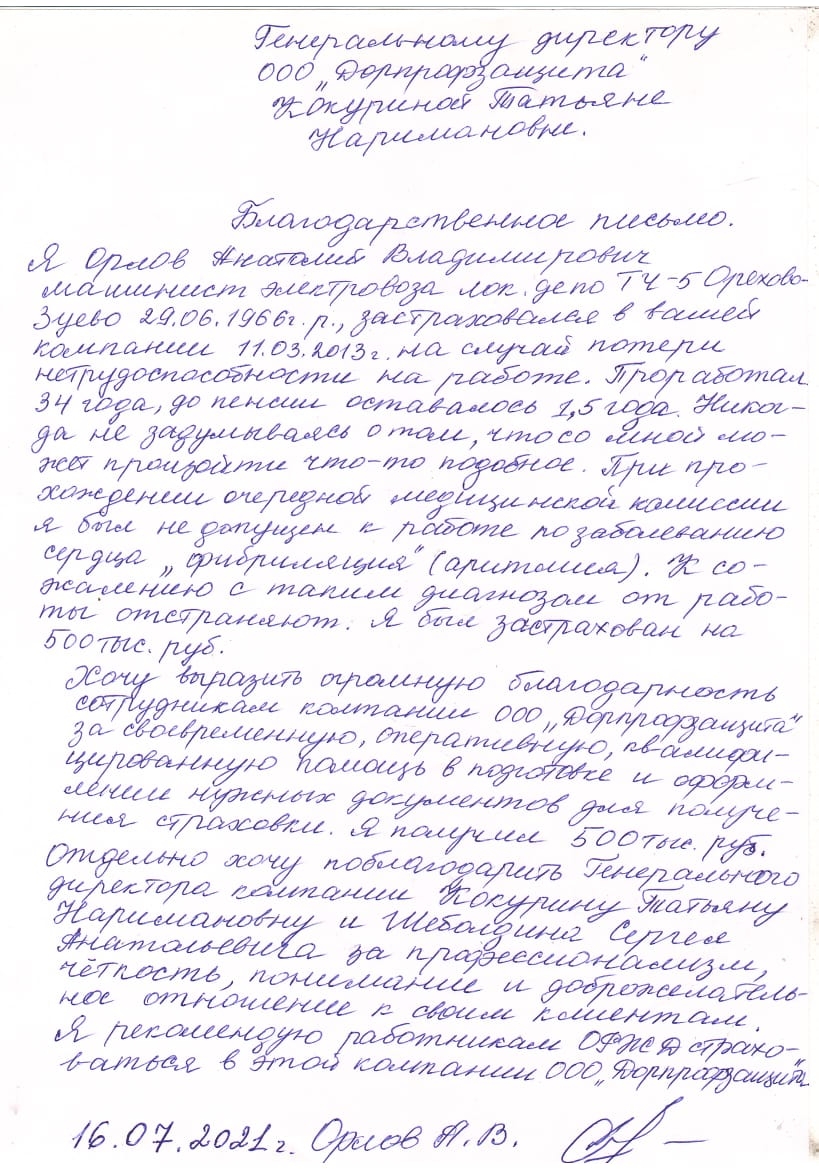 Генеральному директору
ООО „Дорпрофзащита"
Кокуриной Татьяне
Наримановне.
Благодарственное письмо.
Я Орлов Анатолий Владимирович
машинист электровоза лок. депо ТЧ-5 Орехово-
Зуево 29.06.1966г.р., застраховался в вашей
компании 11.03.2013г. на случай потери
нетрудоспособности на работе. Проработал
34 года, до пенсии оставалось 1,5 года. Никог-
да не задумываясь о том, что со мной мо-
жет произойти что-то подобное. При про-
хождении очередной медицинской комиссии
я был не допущен к работе по заболеванию
сердца „фибриляция" (аритмия). К со-
жалению с таким диагнозом от рабо-
ты отстраняют. Я был застрахован на
500 тыс. руб.
Хочу выразить огромную благодарность
сотрудникам компании ООО „Дорпрофзащита"
за своевременную, оперативную, квалифи-
цированную помощь в подготовке и оформ-
лении нужных документов для получе-
ния страховки. Я получил 500 тыс. руб.
Отдельно хочу поблагодарить Генерального
директора компании Кокурину Татьяну
Наримановну и Шебалдина Сергея
Анатольевича за профессионализм,
чёткость, понимание и доброжелатель-
ное отношение к своим клиентам.
Я рекомендую работникам ОРЖД страхо-
ваться в этой компании ООО „Дорпрофзащита"
16.07.2021г. Орлов А.В.